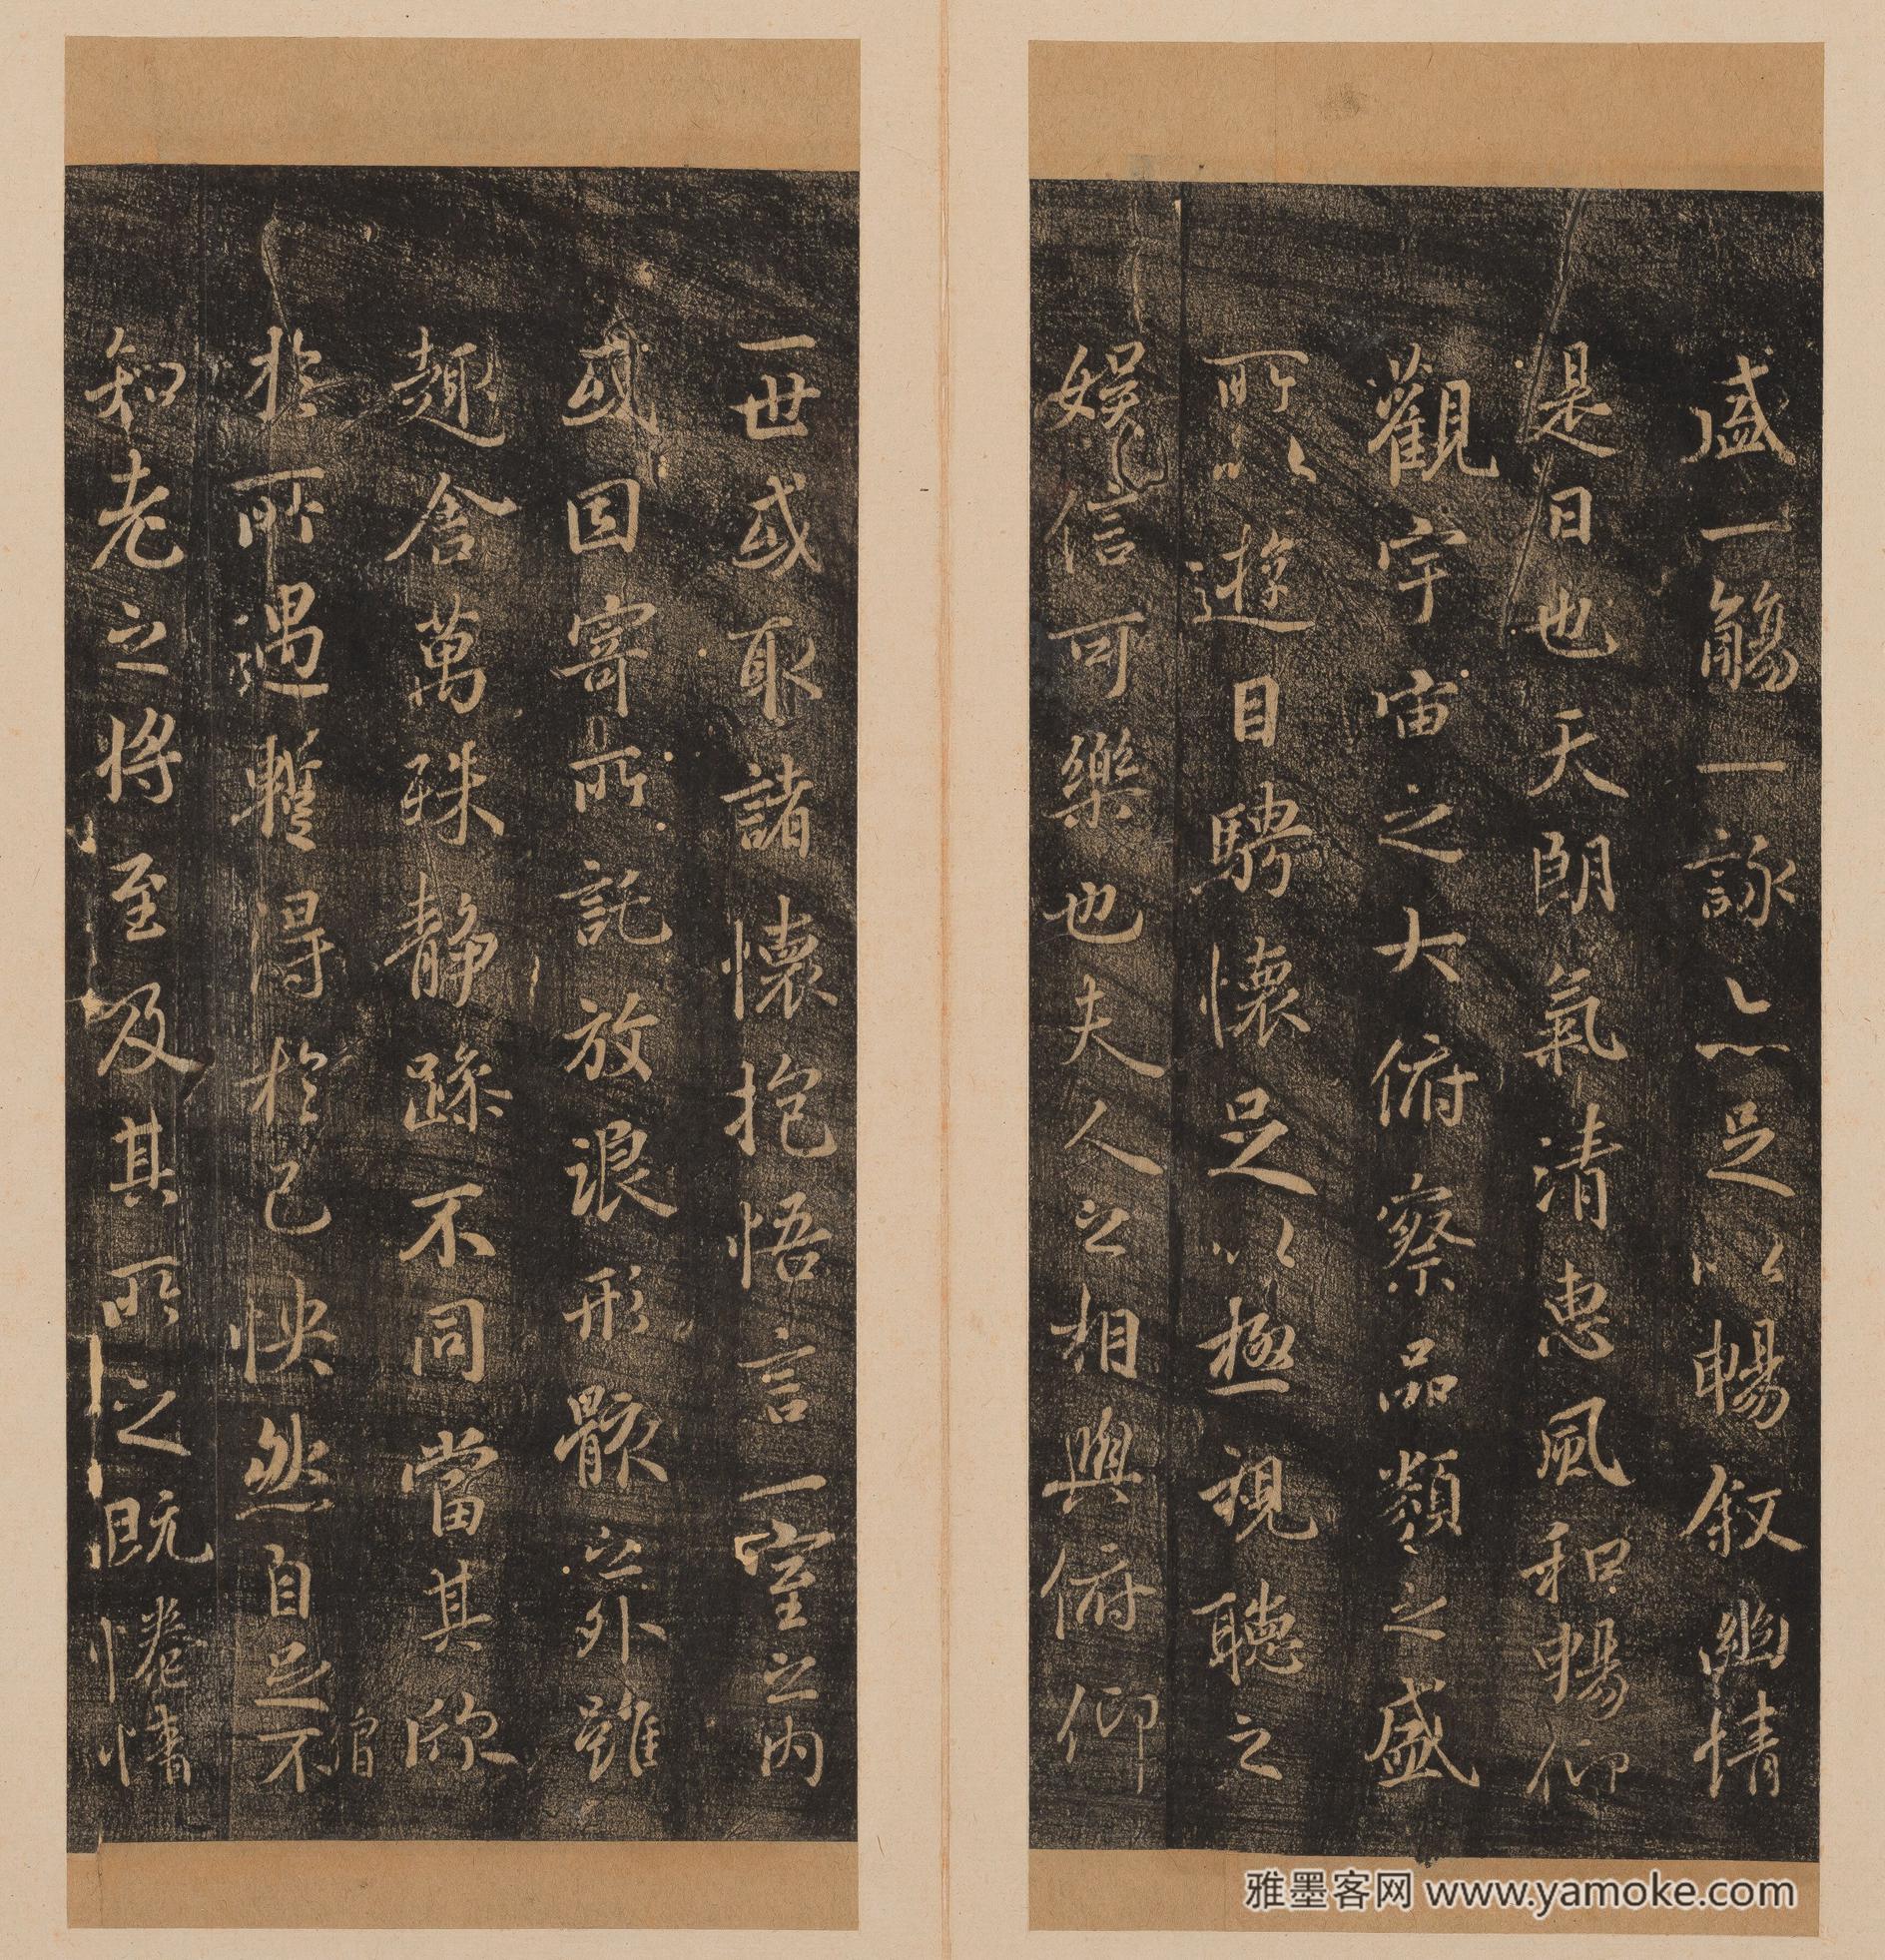 盛一觴一詠亦足以暢敘幽情
是日也天朗氣清惠風和暢仰
觀宇宙之大俯察品類之盛
所以遊目騁懷足以極視聽之
娛信可樂也夫人之相與俯仰
一世或取諸懷抱悟言一室之內
或因寄所託放浪形骸之外雖
趣舍萬殊靜躁不同當其欣
於所遇暫得於己怏然自足不
知老之將至及其所之既惓情
雅墨客网 www.yamoke.com